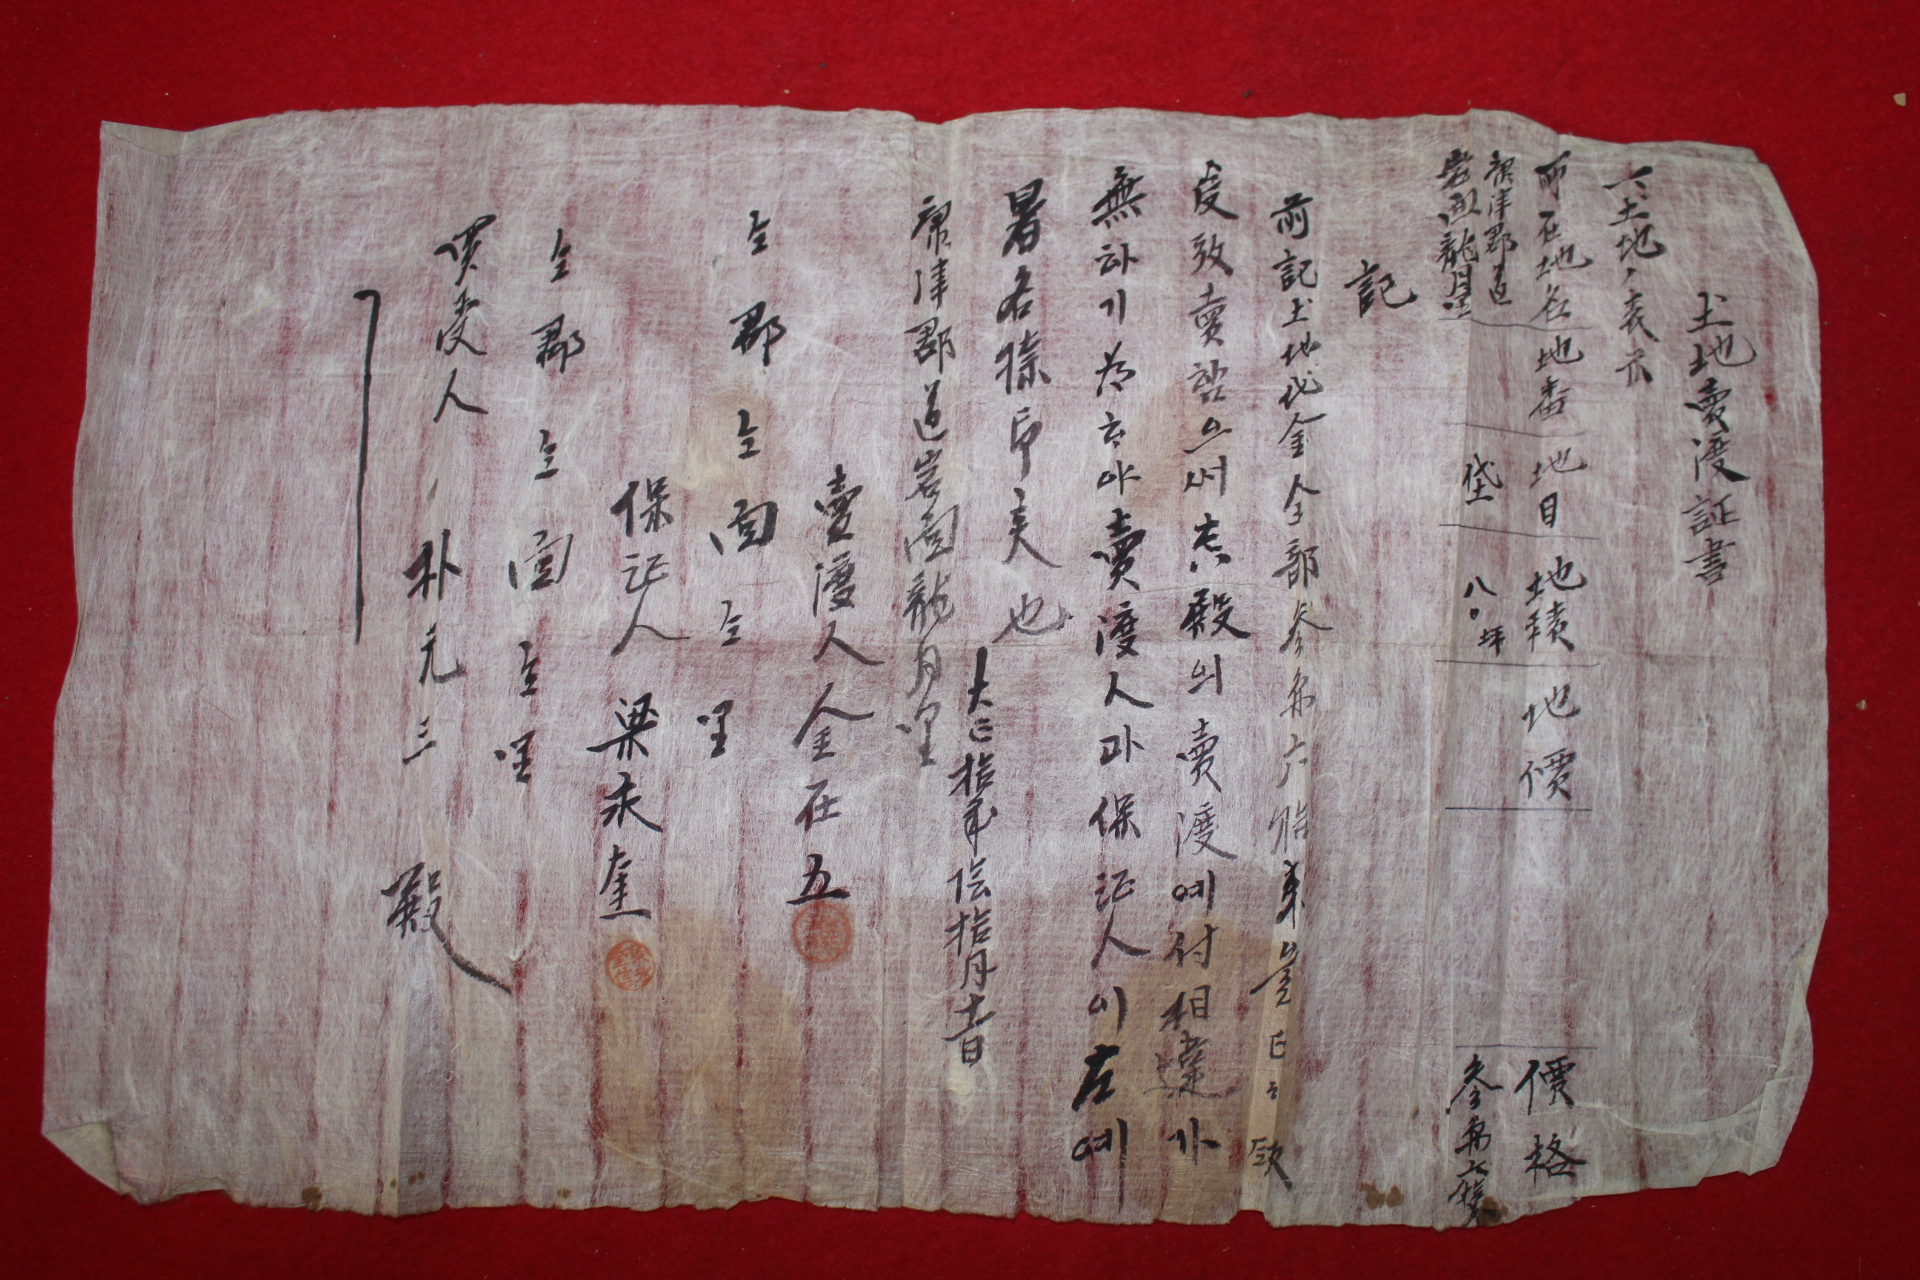 土地賣渡証書
一、土地ノ表示
所在地名 地番 地目 地積 地價 價格
康津郡道
岩面龍月里 垈 八〇坪 參兩六戔
記
前記土地代金全部參兩六
受致賣渡 殿의 賣渡예付相違가
無하기 爲하야 賣渡人과 保証人이 左예
署名捺印 也
大正拾年 拾月 日
康津郡道岩面龍月里
賣渡人 金在五
仝郡仝面仝里
保証人 梁永奎
仝郡仝面仝里
買受人 朴元三 殿